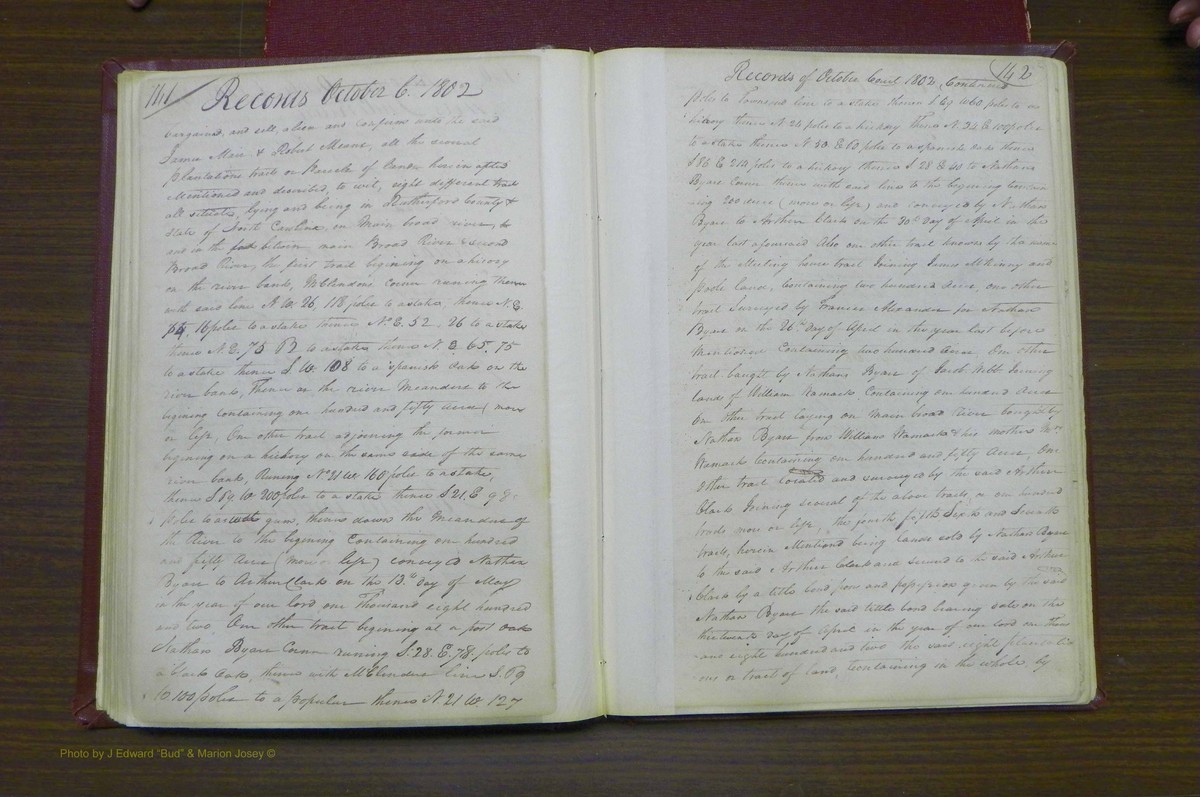 141 Records October 6. 1802
bargained, and sell, alien and confirm unto the said
James Mair & Robert Means, all the several
plantations tracts or Parcels of lands herein after
Mentioned and described, to wit, eight different tracts
all situate, lying and being in Rutherford County &
State of North Carolina, on Main broad river, &
and in the fork between main Broad River & second
Broad River, the first tract begining on a hicory
on the river bank, McClendons Corner runing thence
with said line N W 26, 118 poles to a stake, thence N. E.
54, 16 poles to a stake thence N. E. 52, 26 to a stake
thence N. E. 75 P to a stake thence N E 65, 75
to a stake thence S W 108 to a spanish oak on the
river bank, Thence on the river Meanders to the
begining containing one hundred and fifty acres (more
or less, One other tract adjoining the former
begining on a hickory on the same side of the same
river bank, Runing N 21 W 160 poles to a stake,
thence S 69 W 200 poles to a stake thence S 21. E 98
poles to a gum, thence down the Meanders of
the River to the begining Containing one hundred
and fifty Acres (more or less) conveyed Nathan
Byars to Arthur Clark on the 13th day of May
in the year of our lord one Thousand eight hundred
and two One other tract begining at a post oak
Nathan Byars Corner runing S. 28. E. 78. poles to
a black oak, thence with McClendons line S. 69
W 100 poles to a popular thence N. 21 W. 127
Records of October Court 1802 Continued 142
poles to Townsend line to a stake thence S 69 W 60 poles to an
hicory thence N. 24 poles to a hickory Thence N. 34 E 100 poles
to a stake thence N. 50 E 60 poles to a spanish oak thence
S 86 E 210 poles to a hickory thence S 28 E 40 to Nathan
Byars Corner thence with said lines to the begining Contain
ing 200 acres (more or less) and conveyed by Nathan
Byars to Arthur Clark on the 30th day of April in the
year last aforesaid Also one other tract known by the name
of the Meeting house tract Joining James McKinny and
Poole lands, Containing two hundred Acres, one other
tract Surveyed by Francis Alexander for Nathan
Byars on the 26th day of April in the year last before
Mentioned Containing two hundred Acres One other
tract bought by Nathan Byars of Jacob Webb Joining
lands of William Wamack Containing one hundred Acres
One other tract laying on Main broad River bought by
Nathan Byars from William Wamack & his mother
Wamack Containing one hundred and fifty Acres, One
Other tract Located and surveyed by the said Arthur
Clark Joining several of the above tracts, or one hundred
more or less, the fourth fifth Sixth and Seventh
tracts, herein Mentioned being lands sold by Nathan Byars
to the said Arthur Clark and secured to the said Arthur
Clark by a title bond from and possession given by the said
Nathan Byars the said title bond bearing date on the
thirteenth day of April in the year of our lord one thous
and eight hundred and two the said eight plantati
ons or tract of land, Containing in the whole, by
Photo by J Edward "Bud" & Marion Josey ©